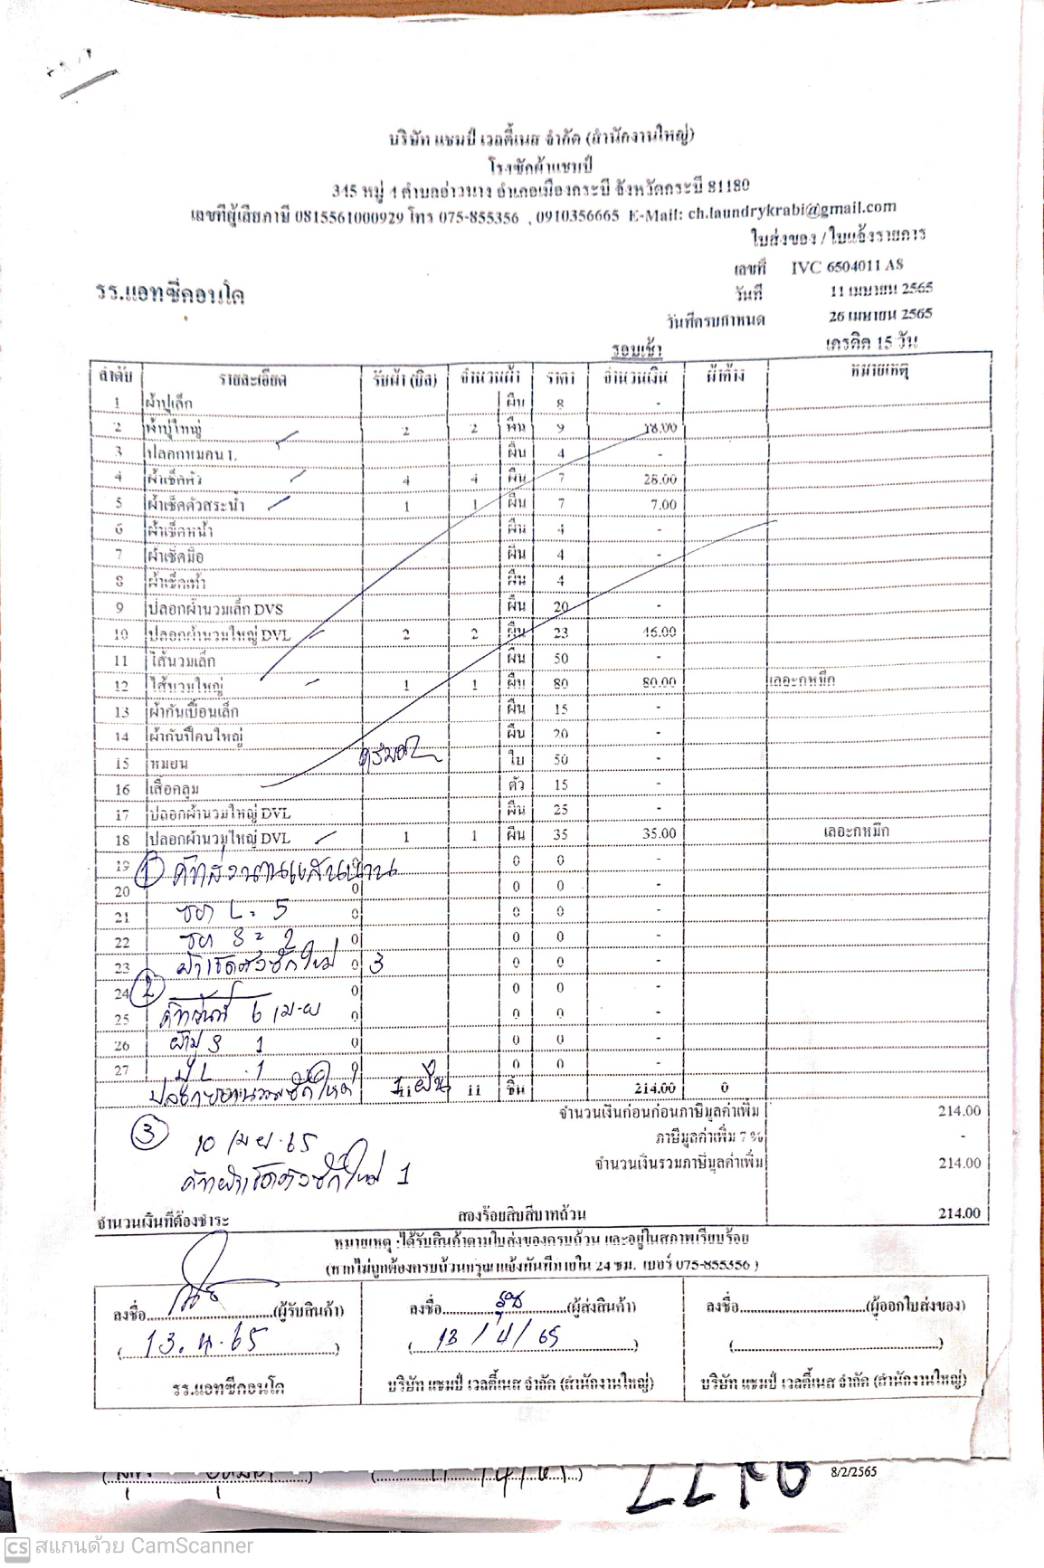 บริษัท แชมป์ เวลตี้เนส จำกัด (สำนักงานใหญ่)
โรงซักผ้าแชมป์
345 หมู่ 4 ตำบลอ่าวนาง อำเภอเมืองกระบี่ จังหวัดกระบี่ 81180
เลขที่ผู้เสียภาษี 0815561000929 โทร 075-855356 , 0910356665 E-Mail: ch.laundrykrabi@gmail.com
ใบส่งของ / ใบแจ้งรายการ
เลขที่ IVC 6504011 AS
รร.แอทซีคอนโด วันที่ 11 เมษายน 2565
วันที่ครบกำหนด 26 เมษายน 2565
รอบเช้า เครดิต 15 วัน
ลำดับ รายละเอียด รับผ้า (บิล) จำนวนผ้า ราคา จำนวนเงิน ผ้าค้าง หมายเหตุ
1 ผ้าปูเล็ก ผืน 8 -
2 ผ้าปูใหญ่ 2 2 ผืน 9 18.00
3 ปลอกหมอน 1. ผืน 4 -
4 ผ้าเช็ดตัว 4 4 ผืน 7 28.00
5 ผ้าเช็ดตัวสระน้ำ 1 1 ผืน 7 7.00
6 ผ้าเช็ดหน้า ผืน 4 -
7 ผ้าเช็ดมือ ผืน 4 -
8 ผ้าเช็ดเท้า ผืน 4 -
9 ปลอกผ้านวมเล็ก DVS ผืน 20 -
10 ปลอกผ้านวมใหญ่ DVL 2 2 ผืน 23 46.00
11 ไส้นวมเล็ก ผืน 50 -
12 ไส้นวมใหญ่ 1 1 ผืน 80 80.00 เลอะกหมึก
13 ผ้ากันเปื้อนเล็ก ผืน 15 -
14 ผ้ากันเปื้อนใหญ่ ผืน 20 -
15 หมอน ใบ 50 -
16 เสื้อคลุม ตัว 15 -
17 ปลอกผ้านวมใหญ่ DVL ผืน 25 -
18 ปลอกผ้านวมใหญ่ DVL 1 1 ผืน 35 35.00 เลอะกหมึก
19 ① 0 0 -
20 0 0 0 -
21 L = 5 0 0 0 -
22 S = 2 0 0 0 -
23 ผ้าเช็ดตัวซักใหม่ 0 3 0 0 -
24 ② 0 0 0 -
25 6 เม-ย 0 0 0 -
26 ผ้าปู S 1 0 0 0 -
27 ปู L 1 0 0 -
11 ผืน 11 ชิ้น 214.00 0
จำนวนเงินก่อนก่อนภาษีมูลค่าเพิ่ม 214.00
③ 10 เมย.65 ภาษีมูลค่าเพิ่ม 7 % -
ผ้าเช็ดตัวซักใหม่ 1 จำนวนเงินรวมภาษีมูลค่าเพิ่ม 214.00
จำนวนเงินที่ต้องชำระ สองร้อยสิบสี่บาทถ้วน 214.00
หมายเหตุ :ได้รับสินค้าตามใบส่งของครบถ้วน และอยู่ในสภาพเรียบร้อย
(หากไม่ถูกต้องครบถ้วนกรุณาแจ้งทันทีภายใน 24 ชม. เบอร์ 075-855356 )
ลงชื่อ (ผู้รับสินค้า) ลงชื่อ (ผู้ส่งสินค้า) ลงชื่อ (ผู้ออกใบส่งของ)
(13.4.65) (13/4/65) ( )
รร.แอทซีคอนโด บริษัท แชมป์ เวลตี้เนส จำกัด (สำนักงานใหญ่) บริษัท แชมป์ เวลตี้เนส จำกัด (สำนักงานใหญ่)
8/2/2565
CS สแกนด้วย CamScanner